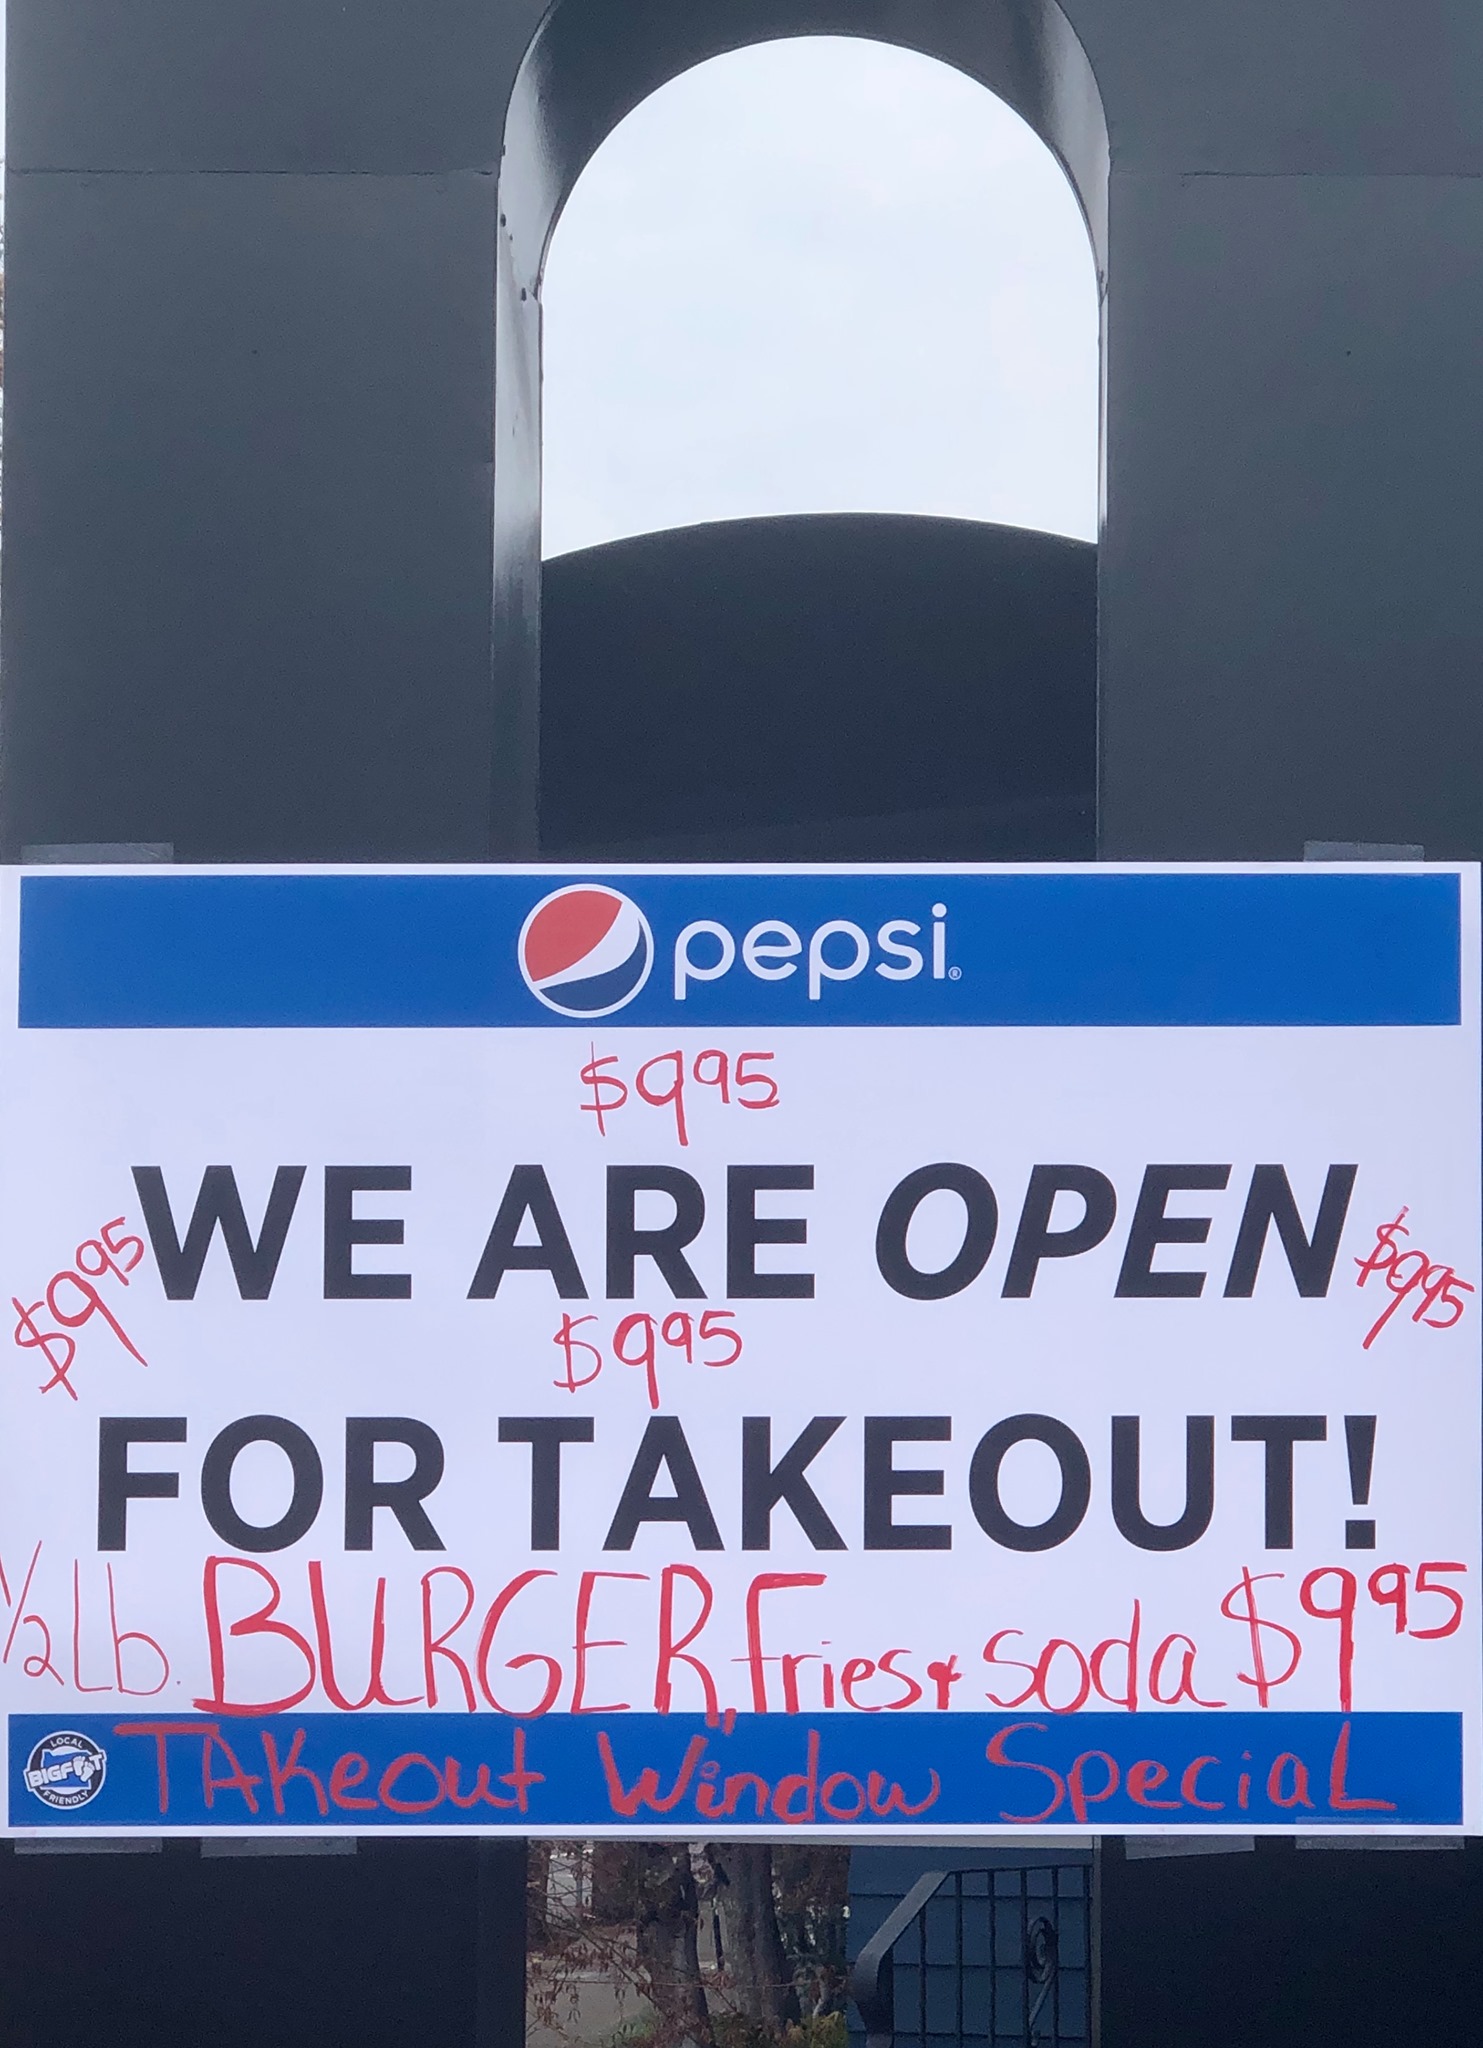 pepsi®
$9.95
WE ARE OPEN
$9.95
$9.95
$9.95
FOR TAKEOUT!
1/2 Lb. BURGER, Fries & Soda $9.95
LOCAL
BIGFOOT
FRIENDLY
TAKeout Window SpeciaL